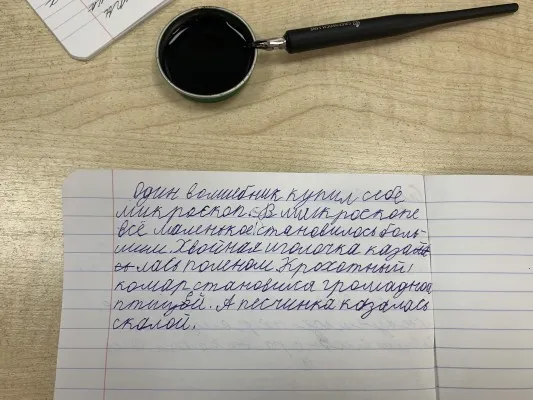 Один волшебник купил себе
микроскоп. В микроскопе
всё маленькое становилось боль-
шим. Хвойная иголочка каза
лась поленом. Крохотный
комар становился громадной
птицей. А песчинка казалась
скалой.